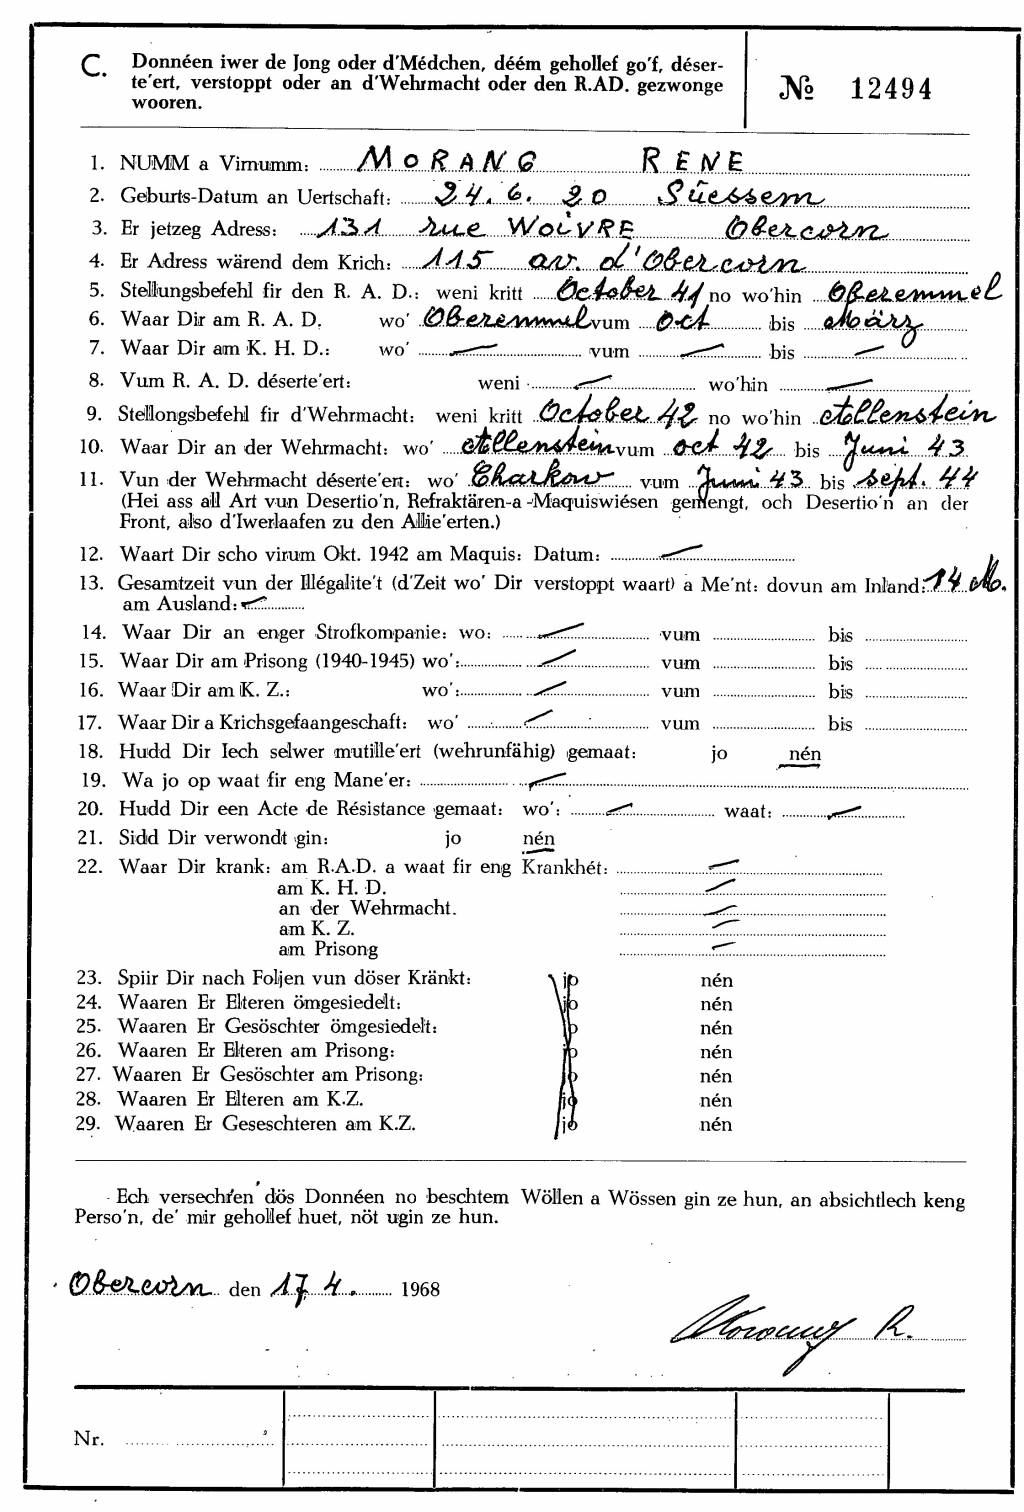 C. Donnéen iwer de Jong oder d'Médchen, déém gehollef go'f, déser-
te'ert, verstoppt oder an d'Wehrmacht oder den R.AD. gezwonge
wooren.
№ 12494
1. NUMM a Virnumm: MORANG RENE
2. Geburts-Datum an Uertschaft: 24.6.20 Süessem
3. Er jetzeg Adress: 131 rue WOIVRE Obercorn
4. Er Adress wärend dem Krich: 115 av. d'Obercorn
5. Stellungsbefehl fir den R. A. D.: weni kritt October 41 no wo'hin Oberemmel
6. Waar Dir am R. A. D. wo' Oberemmel vum Oct bis März
7. Waar Dir am K. H. D.: wo' — vum — bis —
8. Vum R. A. D. déserte'ert: weni — wo'hin —
9. Stellongsbefehl fir d'Wehrmacht: weni kritt October 42 no wo'hin Allenstein
10. Waar Dir an der Wehrmacht: wo' Allenstein vum oct 42 bis Juni 43
11. Vun der Wehrmacht déserte'ert: wo' Charkow vum Juni 43 bis sept. 44
(Hei ass all Art vun Desertio'n, Refraktären-a -Maquiswiésen gemengt, och Desertio'n an der
Front, also d'Iwerlaafen zu den Allie'erten.)
12. Waart Dir scho virum Okt. 1942 am Maquis: Datum: —
13. Gesamtzeit vun der Illégalite't (d'Zeit wo' Dir verstoppt waart) a Me'nt: dovun am Inland: 14 M.
am Ausland: —
14. Waar Dir an enger Strofkompanie: wo: — vum bis
15. Waar Dir am Prisong (1940-1945) wo': — vum bis
16. Waar Dir am K. Z.: wo': — vum bis
17. Waar Dir a Krichsgefaangeschaft: wo' — vum bis
18. Hudd Dir Iech selwer mutille'ert (wehrunfähig) gemaat: jo nén
19. Wa jo op waat fir eng Mane'er: —
20. Hudd Dir een Acte de Résistance gemaat: wo': — waat: —
21. Sidd Dir verwondt gin: jo nén
22. Waar Dir krank: am R.A.D. a waat fir eng Krankhét: —
am K. H. D. —
an der Wehrmacht. —
am K. Z. —
am Prisong —
23. Spiir Dir nach Foljen vun döser Kränkt: jo nén
24. Waaren Er Elteren ömgesiedelt: jo nén
25. Waaren Er Gesöschter ömgesiedelt: jo nén
26. Waaren Er Elteren am Prisong: jo nén
27. Waaren Er Gesöschter am Prisong: jo nén
28. Waaren Er Elteren am K.Z. jo nén
29. Waaren Er Geseschteren am K.Z. jo nén
Ech versech'ren dös Donnéen no beschtem Wöllen a Wössen gin ze hun, an absichtlech keng
Perso'n, de' mir gehollef huet, nöt ugin ze hun.
Obercorn den 17. 4. 1968
Morang R.
Nr.